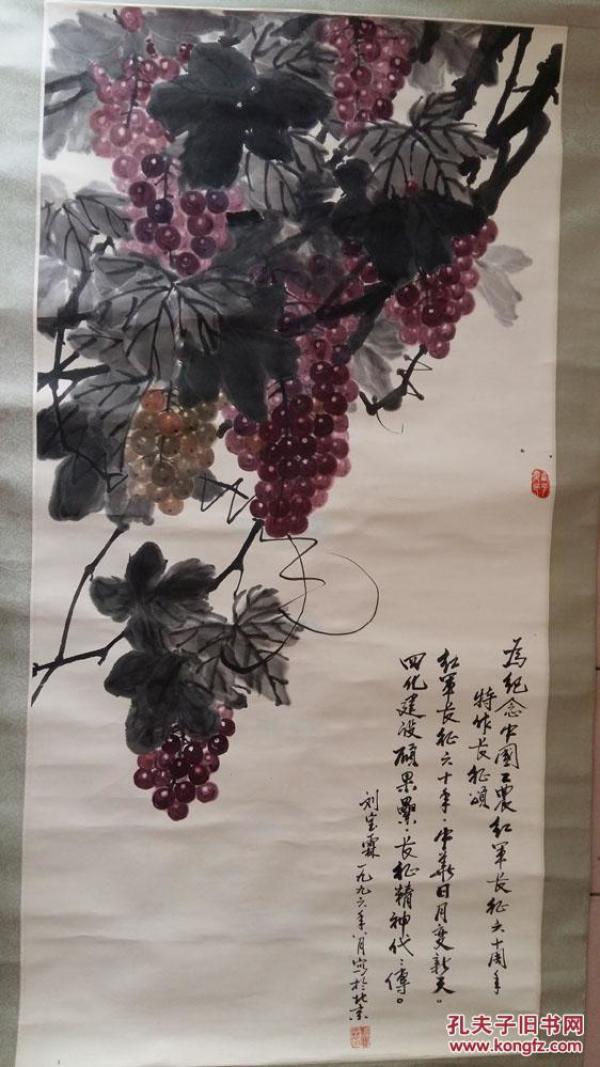 為纪念中國工農红軍長征六十周年
特作長征頌
红軍長征六十年·中華日月变新天。
四化建设硕果累·長征精神代代傳。
刘宝霖一九九六年八月写於北京
孔夫子旧书网
www.kongfz.com